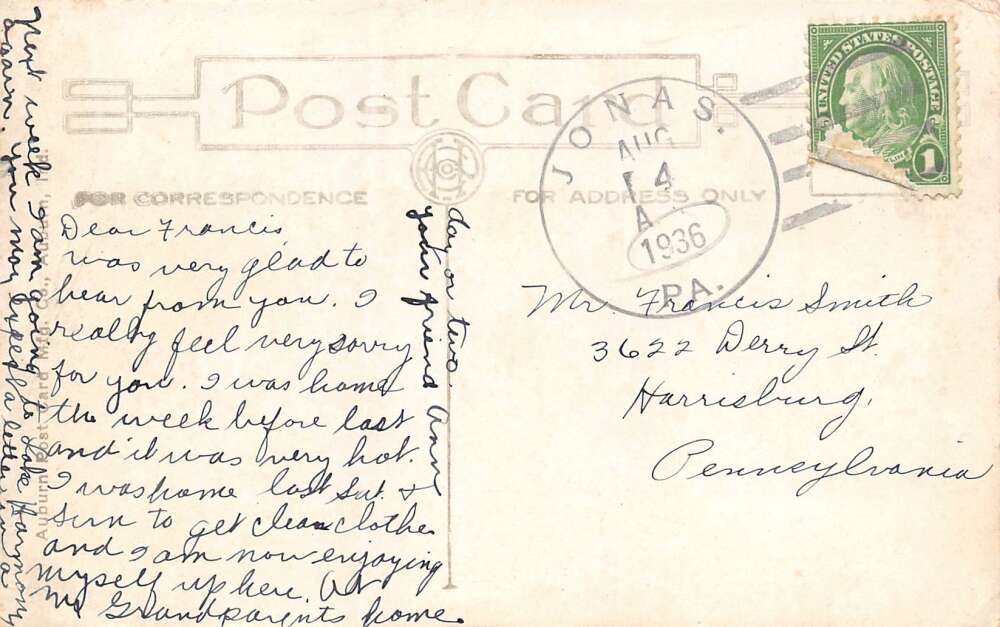 Post Card
FOR CORRESPONDENCE
FOR ADDRESS ONLY
JONAS.
AUG
14
A
1936
PA.
UNITED STATES POSTAGE
1
Dear Francis,
was very glad to
hear from you. I
really feel very sorry
for you. I was home
the week before last
and it was very hot.
I was home last Sat. &
Sun to get clean clothe
and I am now enjoying
myself up here. At
My Grandparents home.
Next week I am going to Lake Harmony
again. You may expect a letter in a
day or two
your friend Ann
Mr. Francis Smith
3622 Derry St.
Harrisburg,
Pennsylvania
Auburn Post Card Mfg. Co., Auburn, Ind.